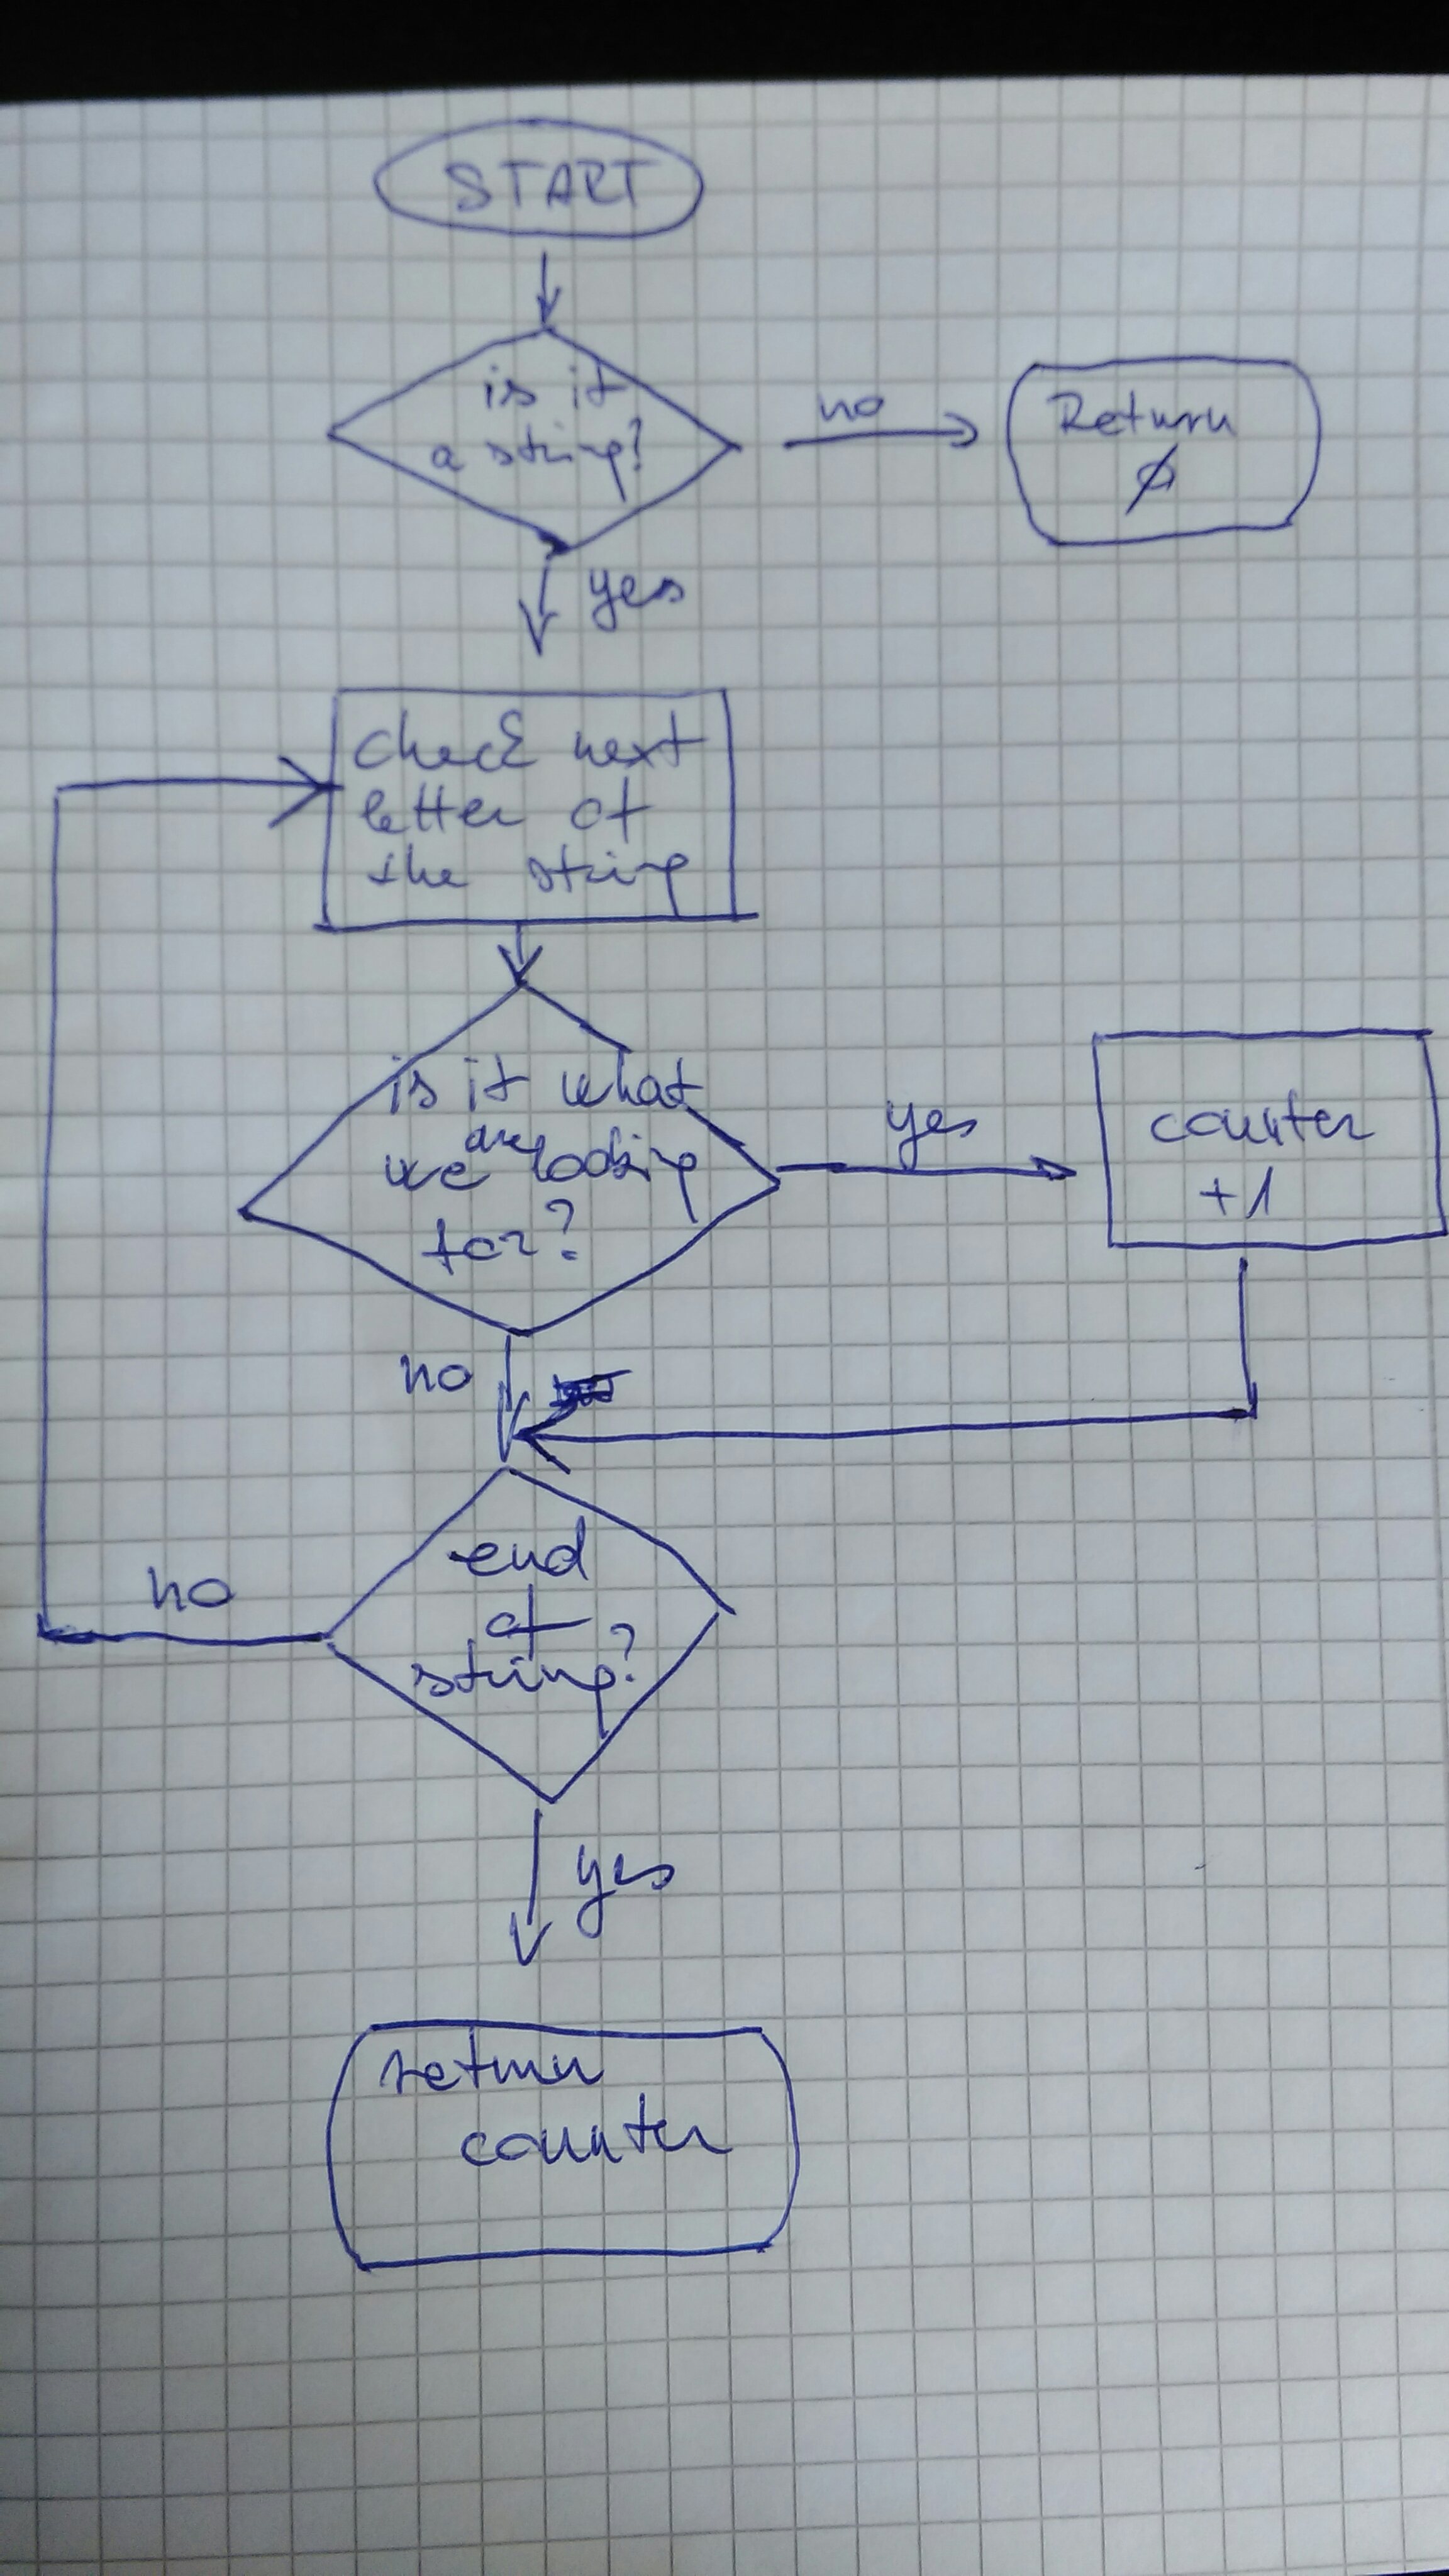 START
is it
a string?
no
Return
Ø
yes
check next
letter of
the string
is it what
we are looking
for?
yes
counter
+1
no
end
of
string?
no
yes
return
counter